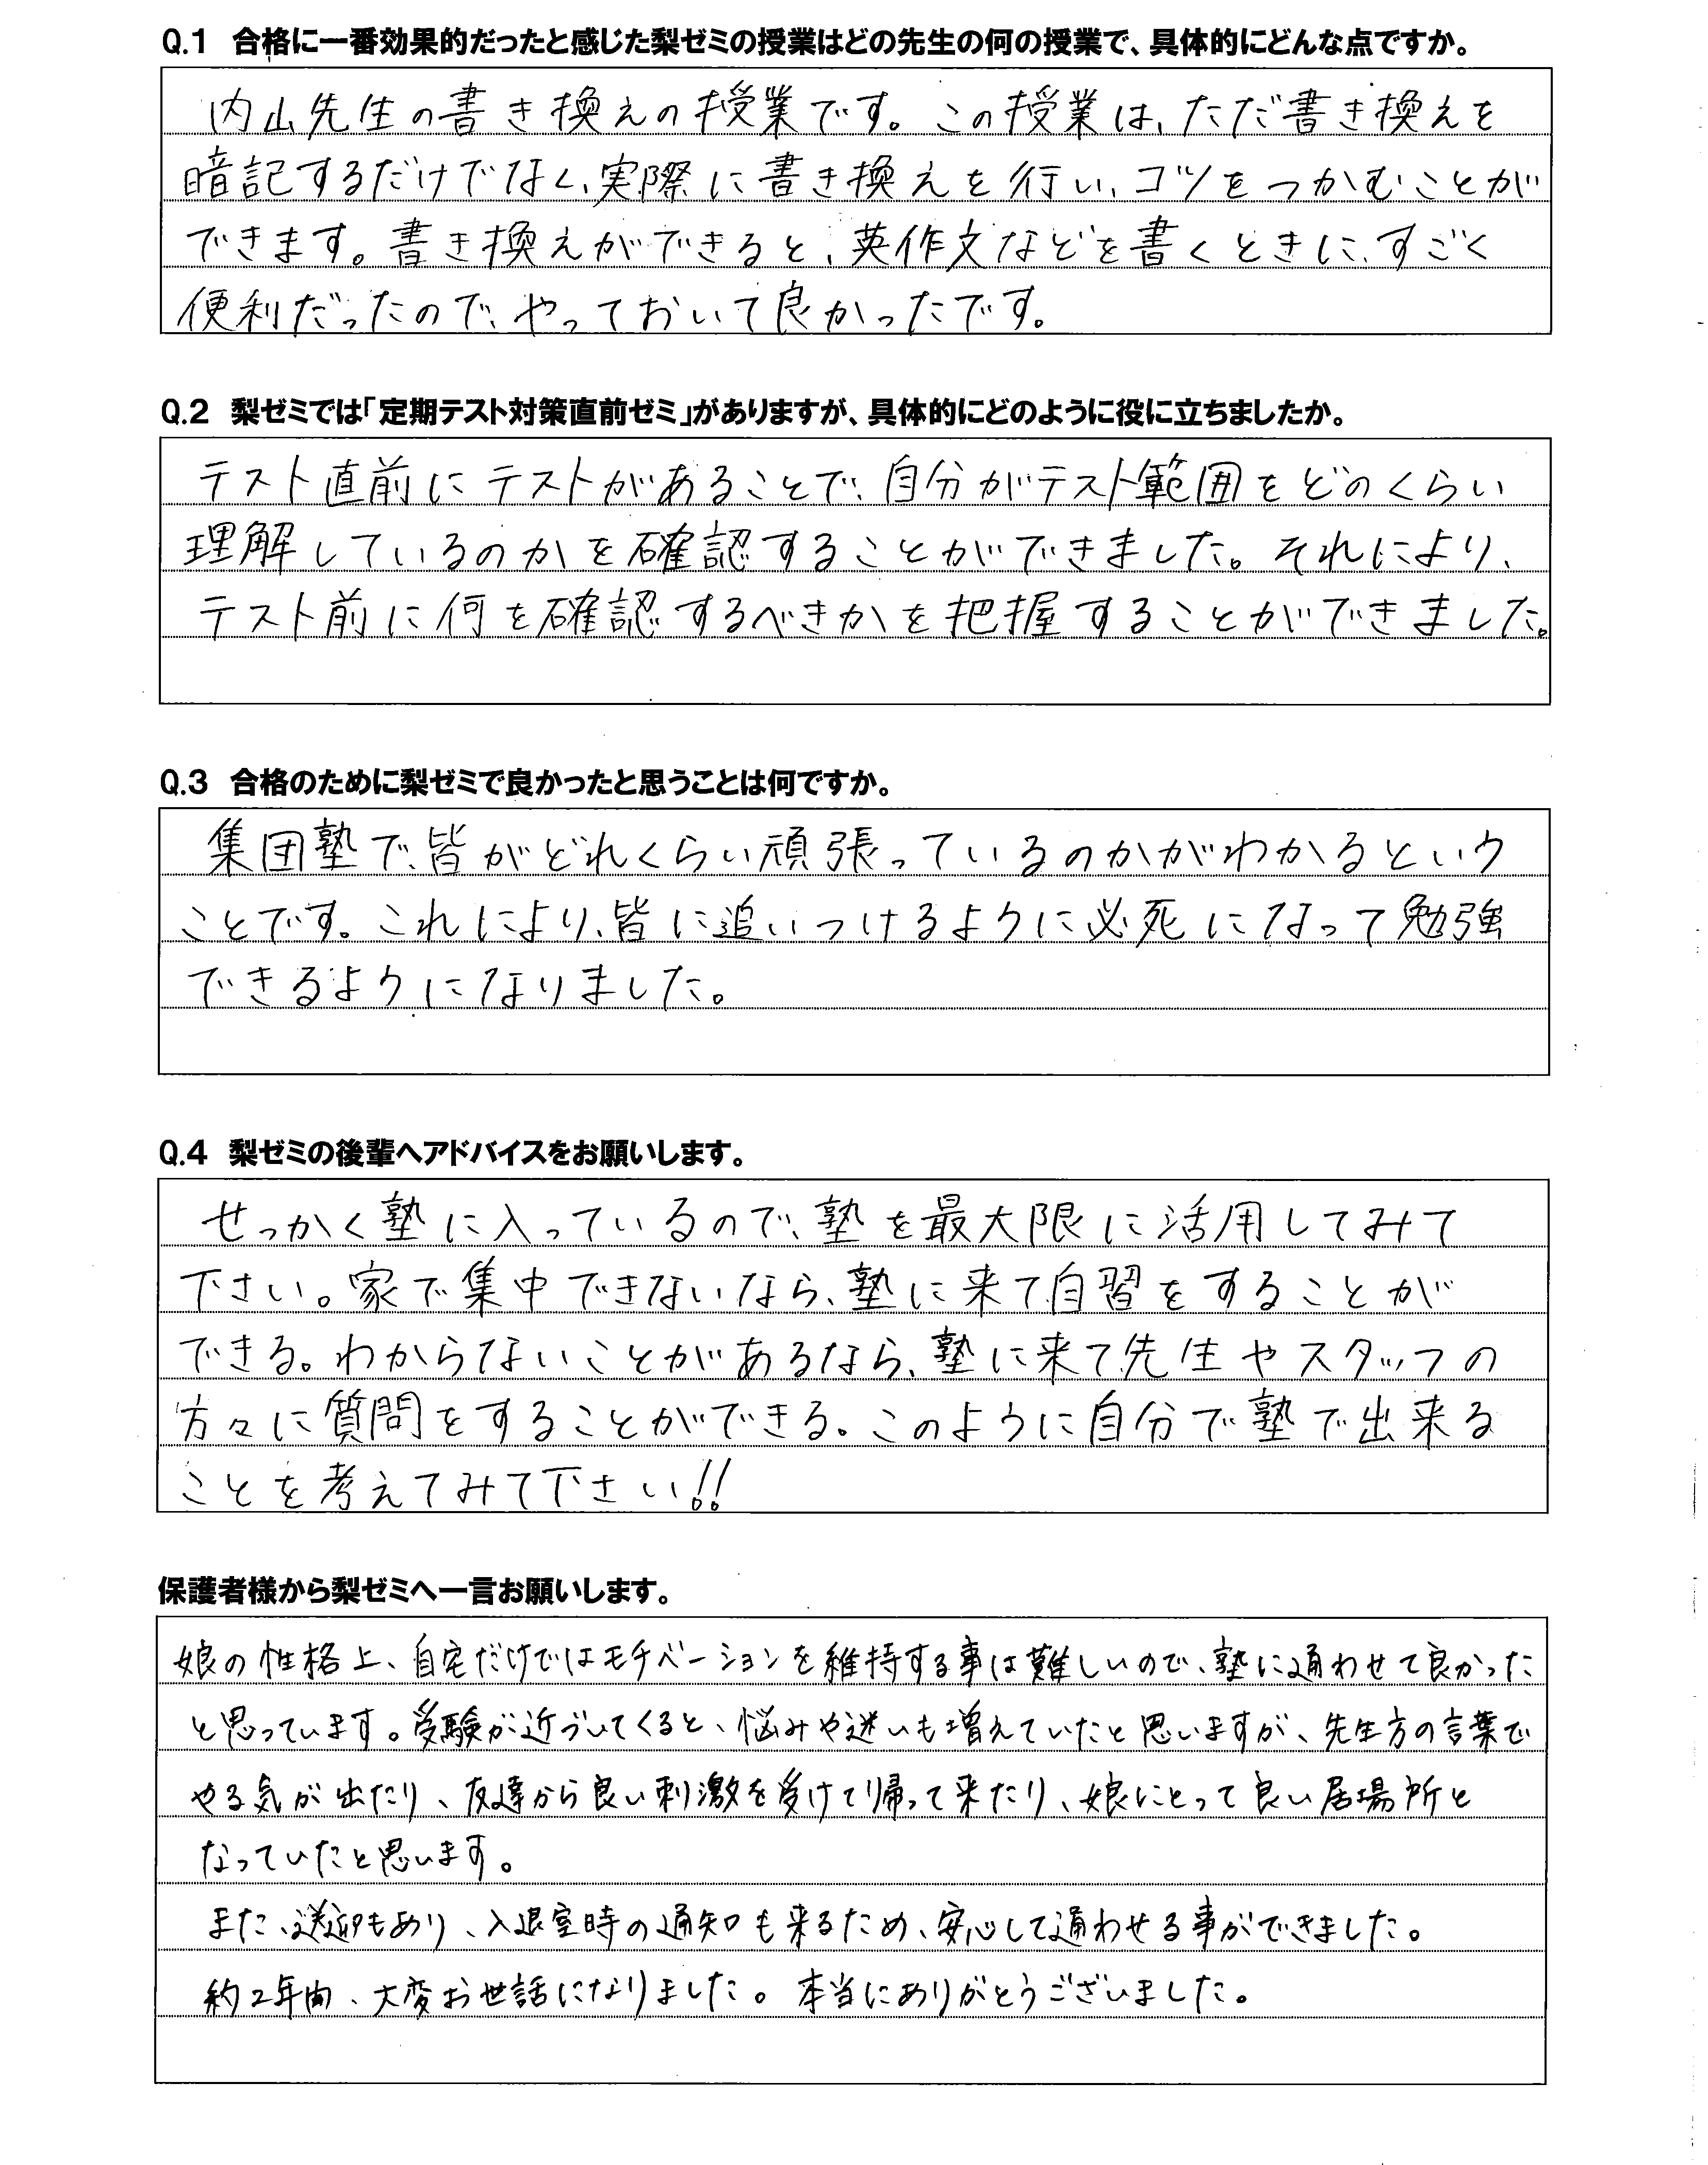 Q.1 合格に一番効果的だったと感じた梨ゼミの授業はどの先生の何の授業で、具体的にどんな点ですか。
内山先生の書き換えの授業です。この授業は、ただ書き換えを
暗記するだけでなく、実際に書き換えを行い、コツをつかむことが
できます。書き換えができると、英作文などを書くときに、すごく
便利だったので、やっておいて良かったです。
Q.2 梨ゼミでは「定期テスト対策直前ゼミ」がありますが、具体的にどのように役に立ちましたか。
テスト直前にテストがあることで、自分がテスト範囲をどのくらい
理解しているのかを確認することができました。それにより、
テスト前に何を確認するべきかを把握することができました。
Q.3 合格のために梨ゼミで良かったと思うことは何ですか。
集団塾で、皆がどれくらい頑張っているのかがわかるという
ことです。これにより、皆に追いつけるように必死になって勉強
できるようになりました。
Q.4 梨ゼミの後輩へアドバイスをお願いします。
せっかく塾に入っているので、塾を最大限に活用してみて
下さい。家で集中できないなら、塾に来て自習をすることが
できる。わからないことがあるなら、塾に来て先生やスタッフの
方々に質問をすることができる。このように自分で塾で出来る
ことを考えてみて下さい!!
保護者様から梨ゼミへ一言お願いします。
娘の性格上、自宅だけではモチベーションを維持する事は難しいので、塾に通わせて良かった
と思っています。受験が近づいてくると、悩みや迷いも増えていたと思いますが、先生方の言葉で
やる気が出たり、友達から良い刺激を受けて帰って来たり、娘にとって良い居場所と
なっていたと思います。
また、送迎もあり、入退室時の通知も来るため、安心して通わせる事ができました。
約2年間、大変お世話になりました。本当にありがとうございました。